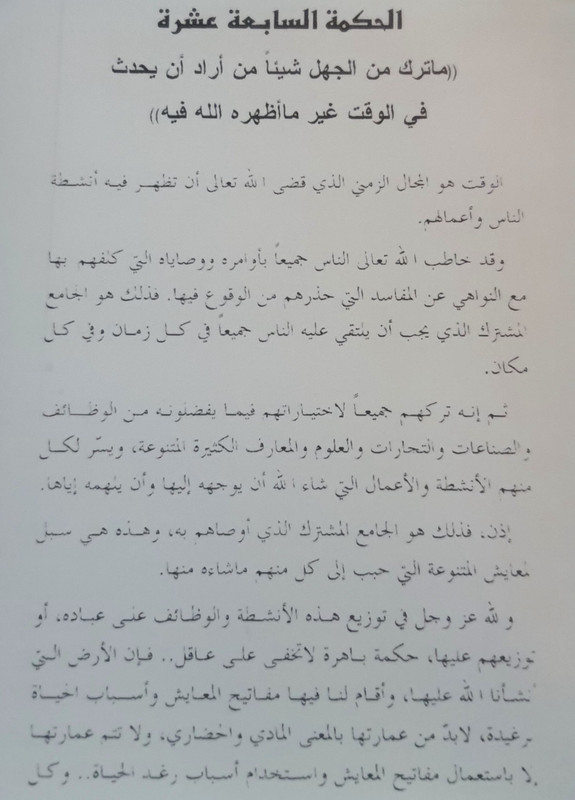 الحكمة السابعة عشرة
((ماترك من الجهل شيئاً من أراد أن يحدث
في الوقت غير ماأظهره الله فيه))
الوقت هو المجال الزمني الذي قضى الله تعالى أن تظهر فيه أنشطة
الناس وأعمالهم.
وقد خاطب الله تعالى الناس جميعاً بأوامره ووصاياه التي كلفهم بها
مع النواهي عن المفاسد التي حذرهم من الوقوع فيها. فذلك هو الجامع
المشترك الذي يجب أن يلتقي عليه الناس جميعاً في كل زمان وفي كل
مكان.
ثم إنه تركهم جميعاً لاختياراتهم فيما يفضلونه من الوظائف
والصناعات والتجارات والعلوم والمعارف الكثيرة المتنوعة، ويسّر لكل
منهم الأنشطة والأعمال التي شاء الله أن يوجهه إليها وأن يلهمه إياها.
إذن، فذلك هو الجامع المشترك الذي أوصاهم به، وهذه هي سبل
المعايش المتنوعة التي حبب إلى كل منهم ماشاءه منها.
و لله عز وجل في توزيع هذه الأنشطة والوظائف على عباده، أو
توزيعهم عليها، حكمة باهرة لاتخفى على عاقل.. فإن الأرض التي
أنشأنا الله عليها، وأقام لنا فيها مفاتيح المعايش وأسباب الحياة
الرغيدة، لابدّ من عمارتها بالمعنى المادي والحضاري، ولا تتم عمارتها
إلا باستعمال مفاتيح المعايش واستخدام أسباب رغد الحياة.. وكل